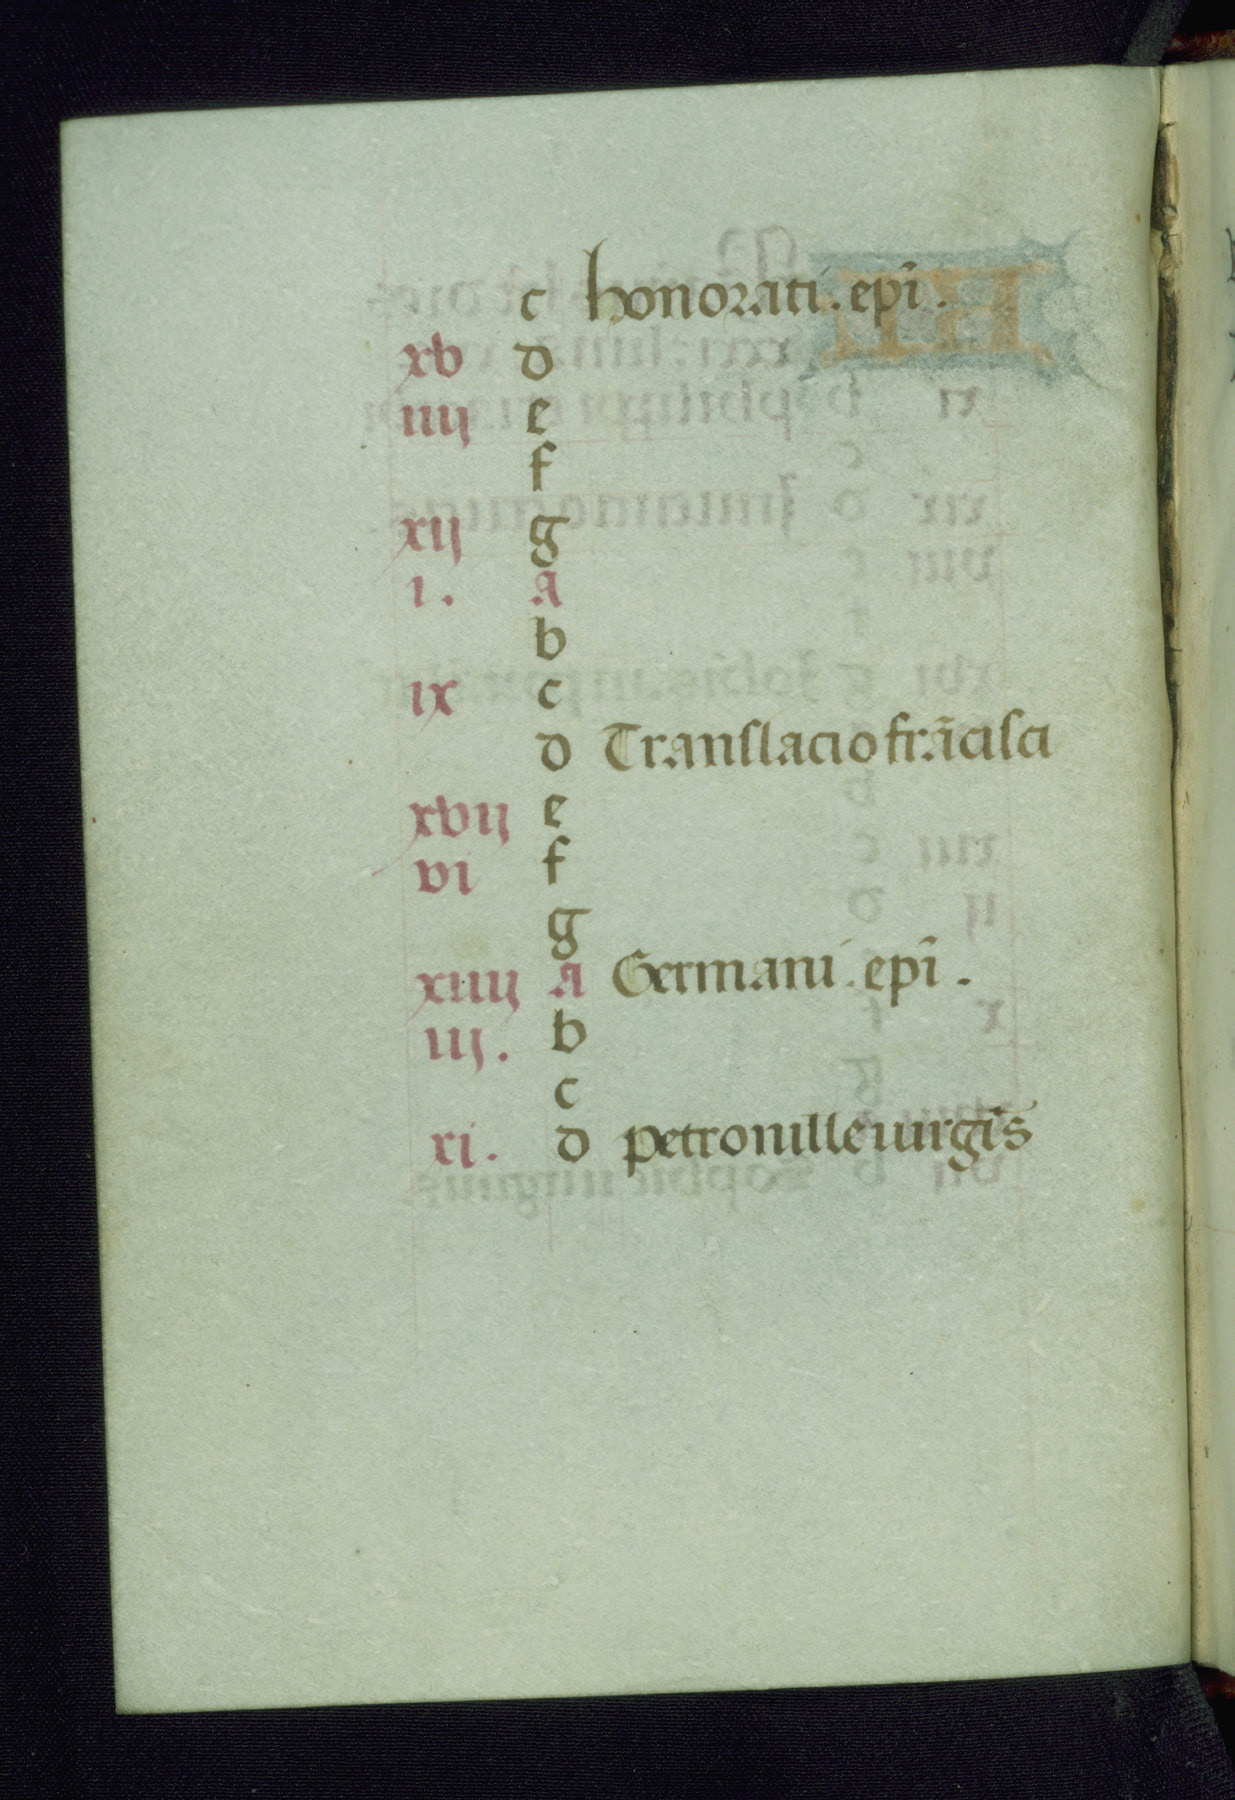 c honorati. epī.
xv d
iiij e
f
xij g
i. A
b
ix c
d Translacio frācisci
xvij e
vi f
g
xiiij A Germani. epī.
iij. b
c
xi. d petronille uirgīs